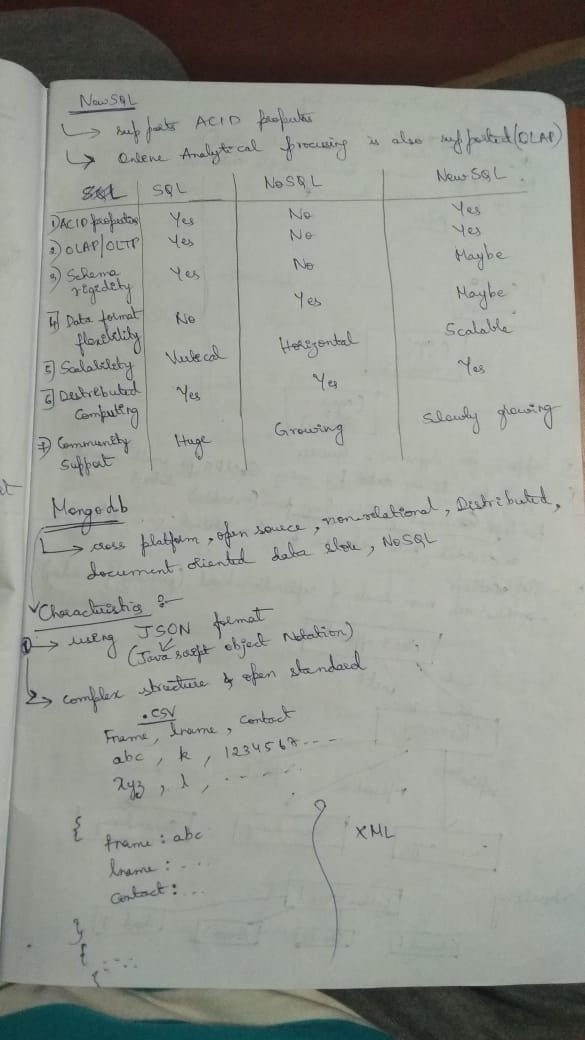 NewSQL
↳ supports ACID properties
↳ Online Analytical processing is also supported (OLAP)
SQL NoSQL NewSQL
1) ACID properties Yes No Yes
2) OLAP/OLTP Yes No Yes
3) Schema rigidity Yes No Maybe
4) Data format flexibility No Yes Maybe
5) Scalability Vertical Horizontal Scalable
6) Distributed Computing Yes Yes Yes
7) Community Support Huge Growing Slowly growing
Mongodb
↳ cross platform, open source, non-relational, Distributed,
document oriented data store, NoSQL
Characteristics :-
1 → using JSON format
(Java script object Notation)
2 → complex structure & open standard
.csv
Fname, lname, contact
abc, k, 1234567---
xyz, l, ------
{
fname : abc XML
lname : ...
contact : ...
}
{
....